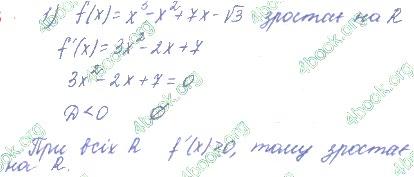 1) f(x) = x³ - x² + 7x - √3 зростає на R
f'(x) = 3x² - 2x + 7
3x² - 2x + 7 = 0
D < 0 ∅
При всіх R f'(x) > 0, тому зростає
на R.